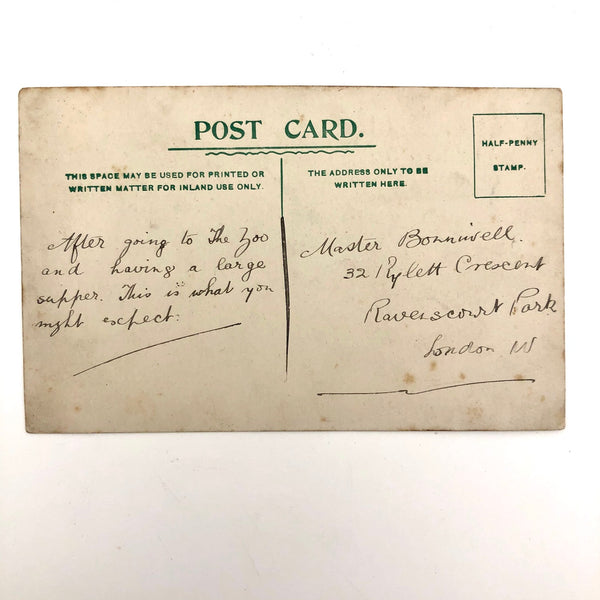 POST CARD.
THIS SPACE MAY BE USED FOR PRINTED OR
WRITTEN MATTER FOR INLAND USE ONLY.
THE ADDRESS ONLY TO BE
WRITTEN HERE.
HALF-PENNY
STAMP.
After going to The Zoo
and having a large
supper. This is what you
might expect:
Master Bonniwell.
32 Rylett Crescent
Ravenscourt Park
London W